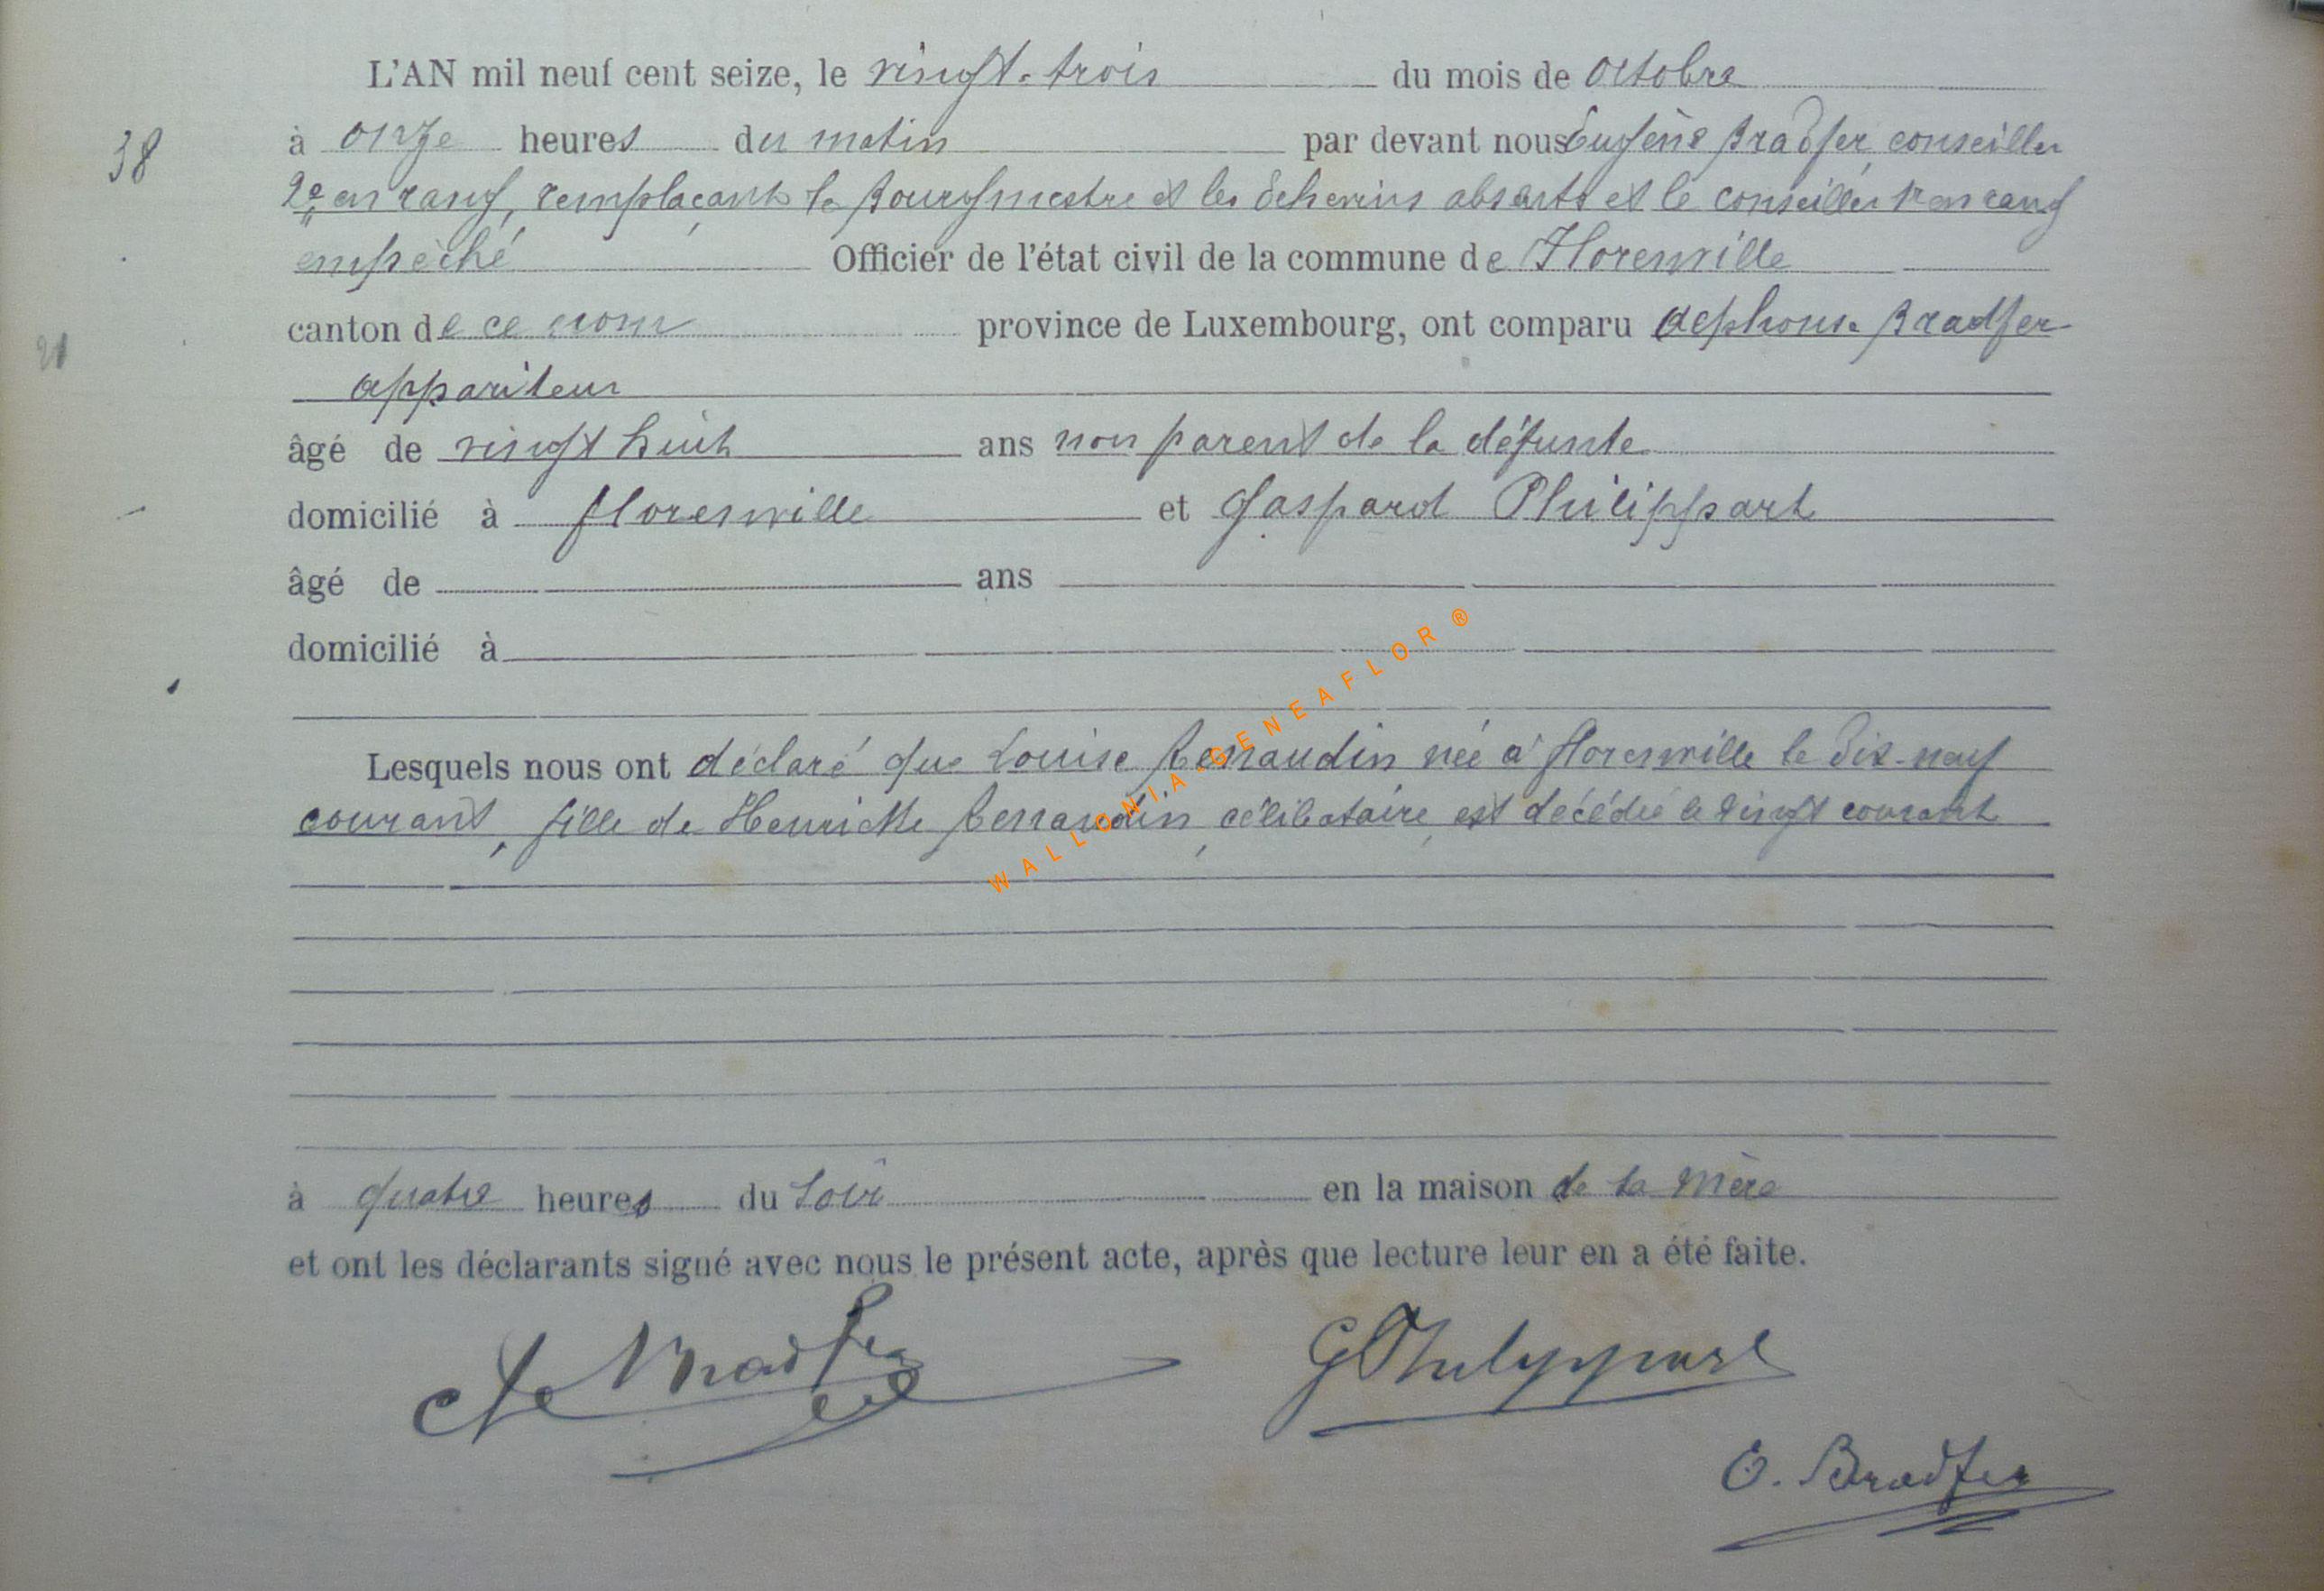 L'AN mil neuf cent seize, le vingt-trois du mois de Octobre
38
à onze heures du matin par devant nous Eugène Bradfer, conseiller
2e en rang, remplaçant le Bourgmestre et les Echevins absents et le conseiller 1er en rang
empêché Officier de l'état civil de la commune de Florenville
canton de ce nom province de Luxembourg, ont comparu Alphonse Bradfer
21
appariteur
âgé de vingt huit ans non parent de la défunte
domicilié à Florenville et Gaspard Philippart
âgé de ans
domicilié à
WALLONIA-GENEAFLOR ®
Lesquels nous ont déclaré que Louise Renaudin née à Florenville le dix-neuf
courant, fille de Henriette Renaudin, célibataire, est décédée le vingt courant
à quatre heures du soir en la maison de sa mère
et ont les déclarants signé avec nous le présent acte, après que lecture leur en a été faite.
Bradfer G Philippart
E. Bradfer